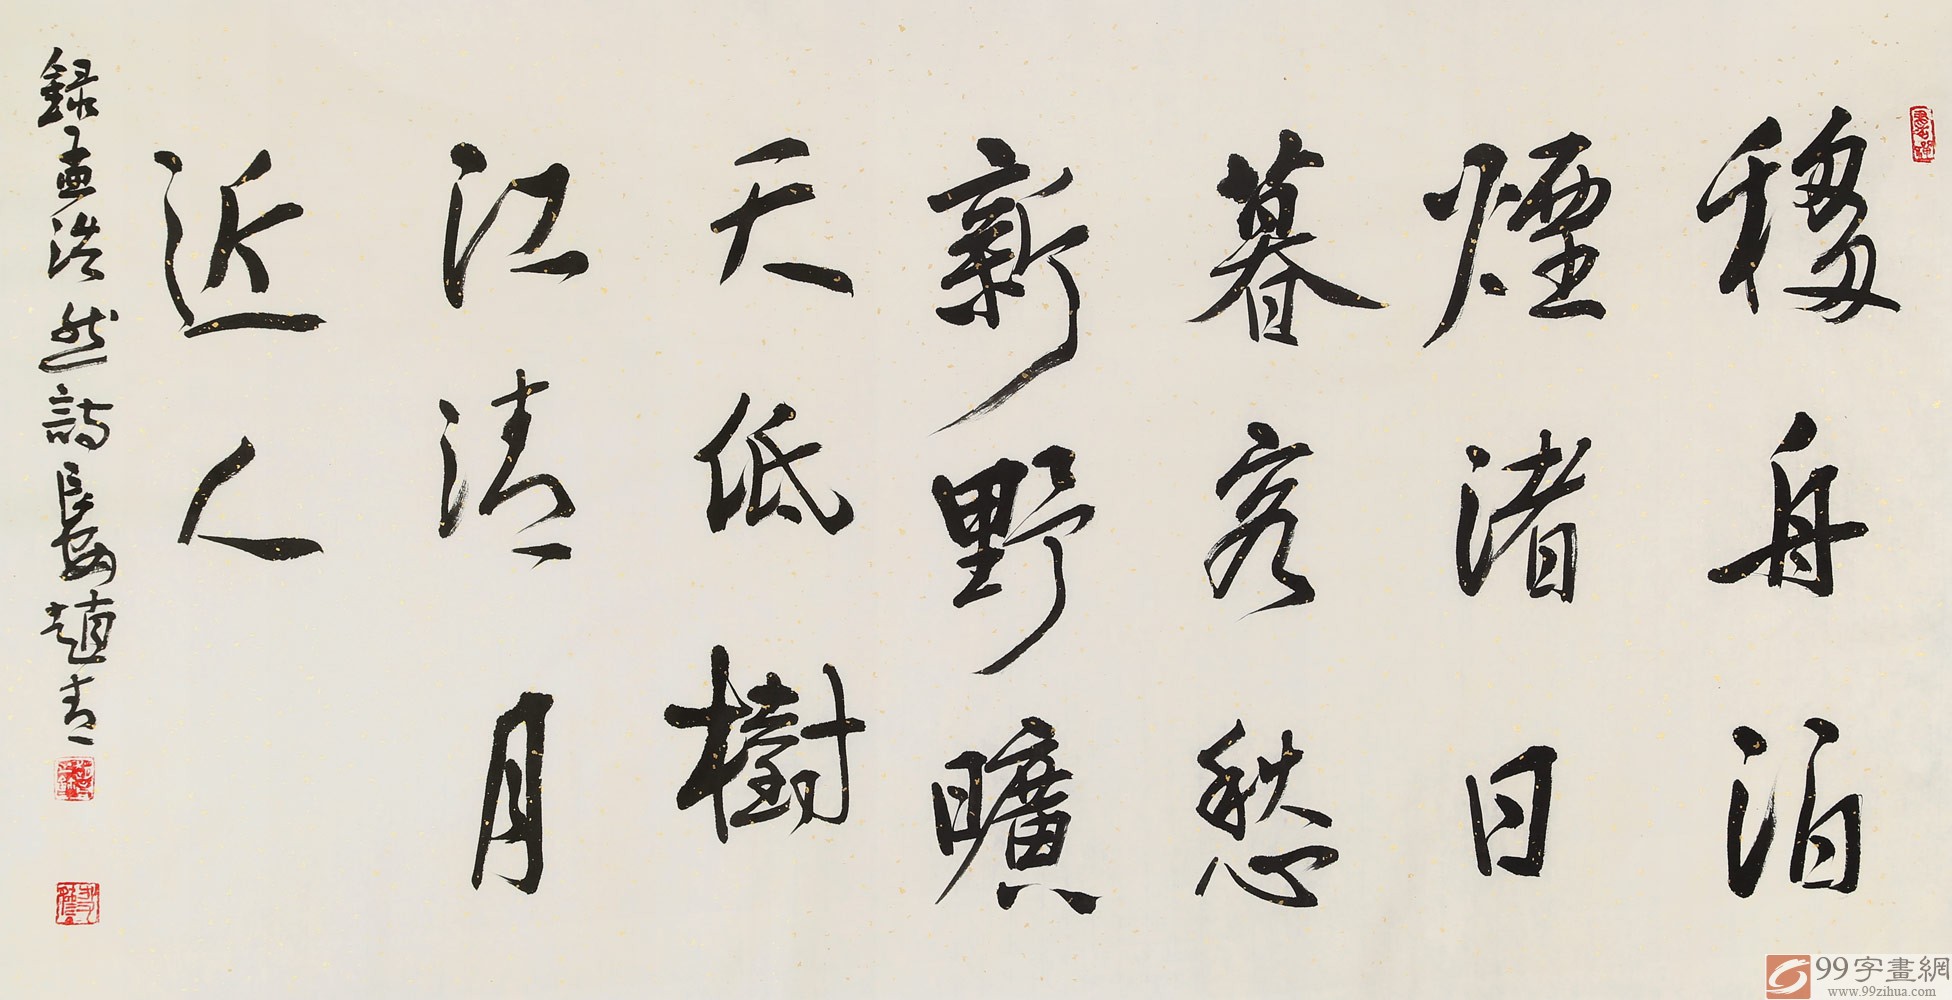 移舟泊
煙渚日
暮客愁
新野曠
天低樹
江清月
近人
録孟浩然詩長安趙青
99字畫網
www.99zihua.com